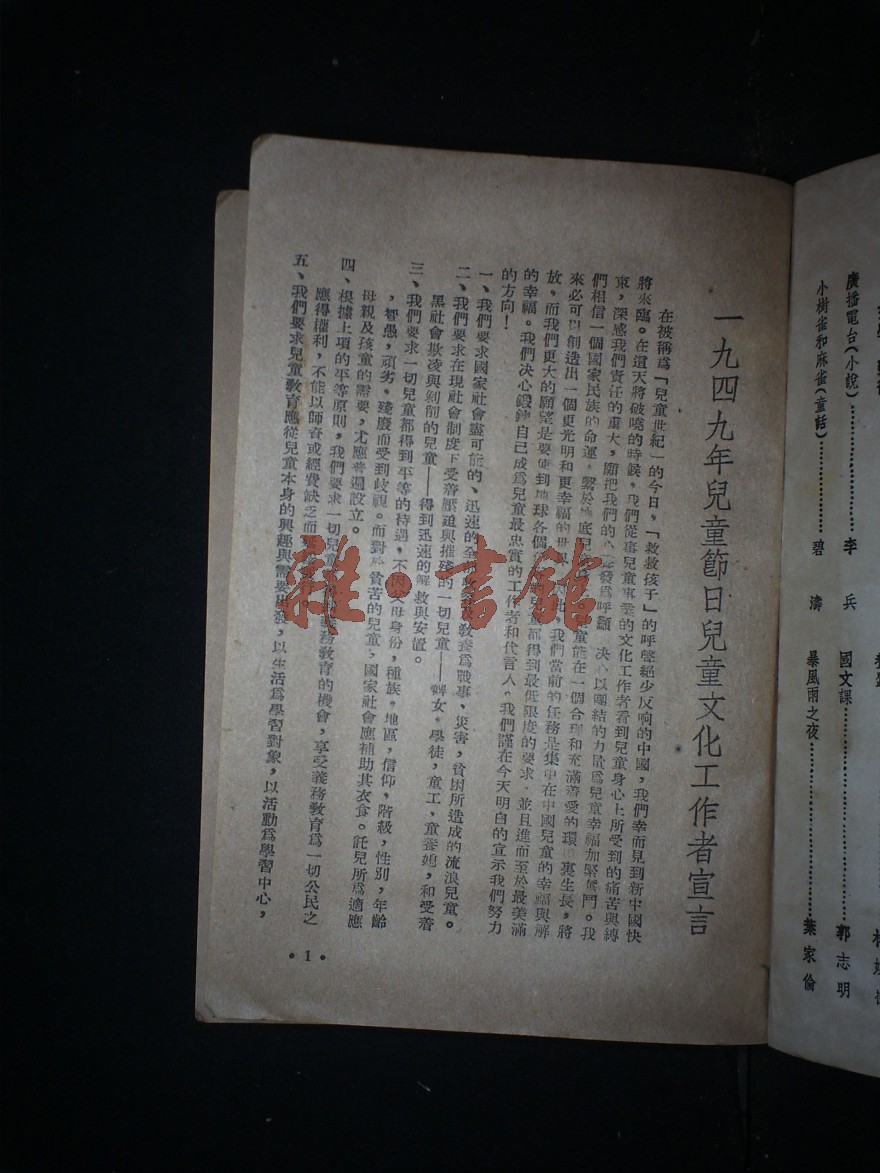 一九四九年兒童節日兒童文化工作者宣言
在被稱爲「兒童世紀」的今日，「救救孩子」的呼聲絕少反响的中國，我們幸而見到新中國快
將來臨。在這天將破曉的時候，我們從事兒童事業的文化工作者看到兒童身心上所受到的痛苦與縛
束，深感我們責任的重大，願把我們的心聲發爲呼籲，决心以團結的力量爲兒童幸福加緊奮鬥。我
們相信一個國家民族的命運，繫於地底兒童，兒童能在一個合理和充滿着愛的環境裏生長，將
來必可以創造出一個更光明和更幸福的世界，我們當前的任務是集中在中國兒童的幸福與解
放，而我們更大的願望是要使到地球各個兒童都得到最低限度的要求，並且進而至於最美滿
的幸福。我們决心鍛鍊自己成爲兒童最忠實的工作者和代言人。我們謹在今天明白的宣示我們努力
的方向！
一、我們要求國家社會盡可能的、迅速的全教養爲戰事、災害，貧困所造成的流浪兒童。
二、我們要求在現社會制度下受着壓迫與摧殘的一切兒童——婢女，學徒，童工，童養媳，和受着
黑社會欺凌與剝削的兒童——得到迅速的解救與安置。
三、我們要求一切兒童都得到平等的待遇，不因父母身份，種族，地區，信仰，階級，性別，年齡
，智愚，頑劣，殘廢而受到歧視。而對於貧苦的兒童，國家社會應補助其衣食。託兒所爲適應
母親及孩童的需要，尤應普遍設立。
四、根據上項的平等原則，我們要求一切兒童義務教育的機會，享受義務教育爲一切公民之
應得權利，不能以師資或經費缺乏而
五、我們要求兒童教育應從兒童本身的興趣與需要出發，以生活爲學習對象，以活動爲學習中心，
•1•
廣播電台（小說）……李兵
小樹雀和麻雀（童話）……碧濤
國文課……郭志明
暴風雨之夜……葉家倫
雜·書館